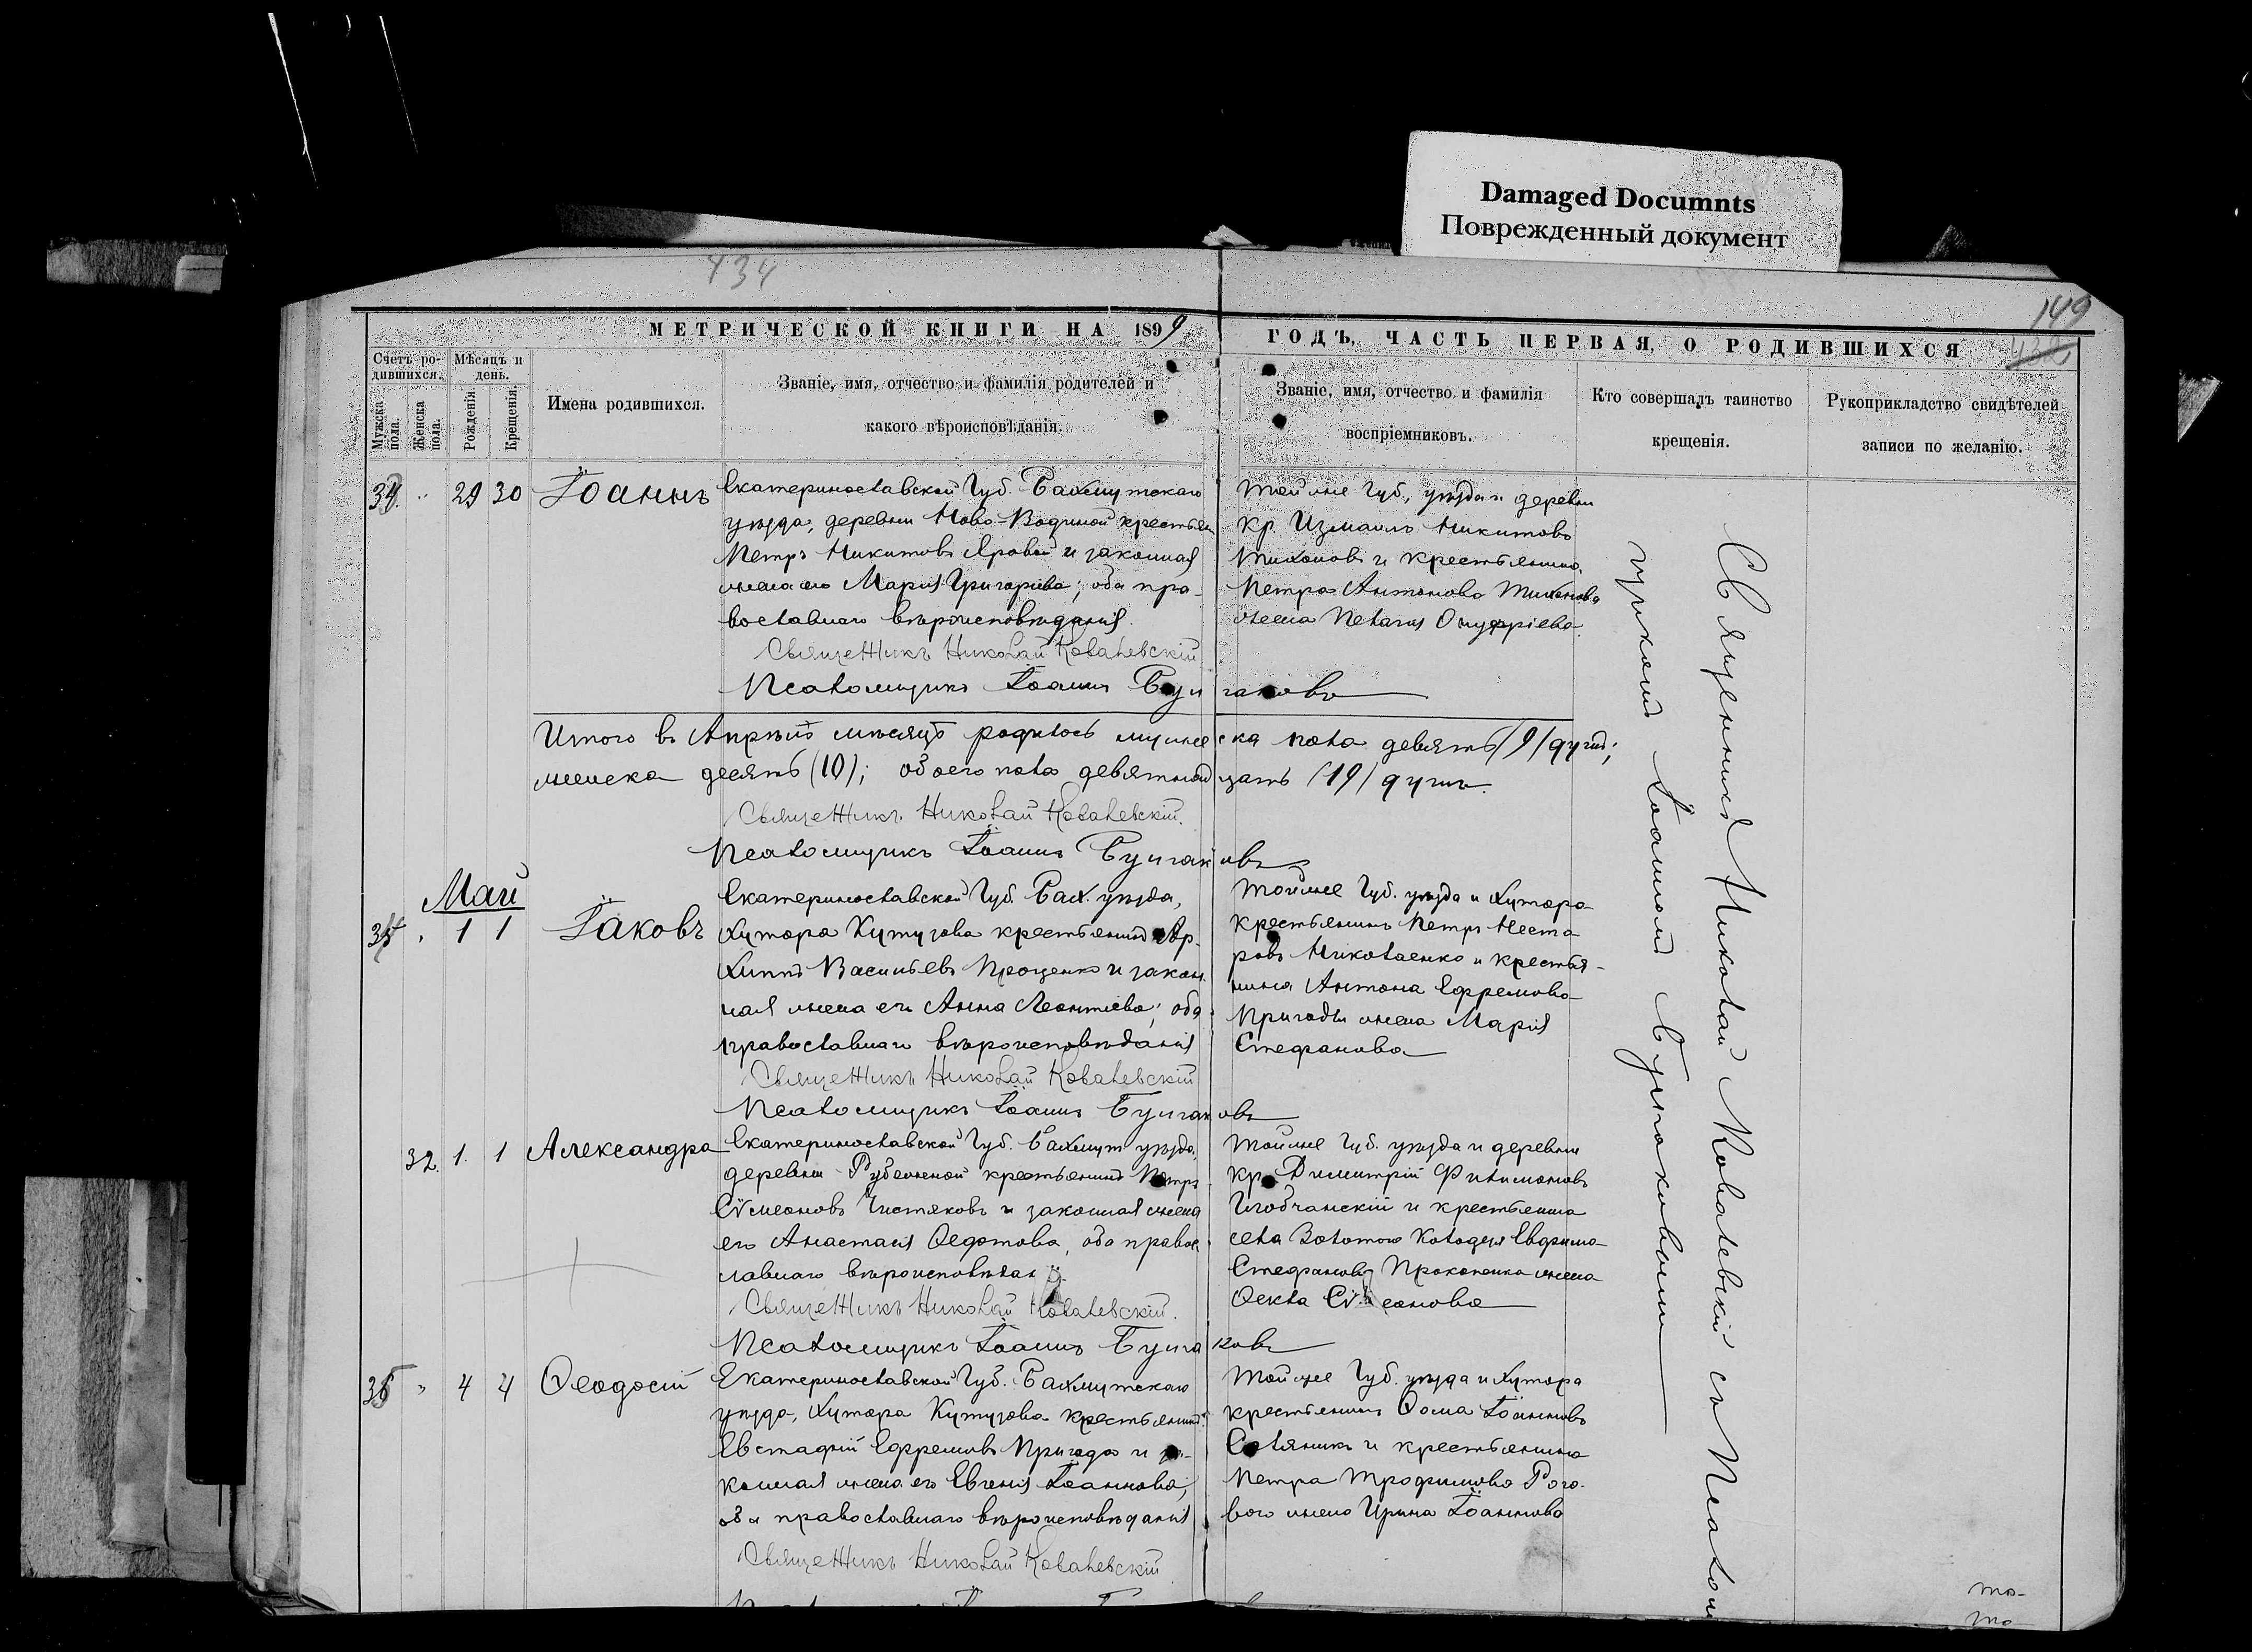 Damaged Documnts
Поврежденный документ
434
149
МЕТРИЧЕСКОЙ КНИГИ НА 1899
ГОДЪ, ЧАСТЬ ПЕРВАЯ, О РОДИВШИХСЯ
Счетъ ро-
дившихся.
Мужска
пола.
Женска
пола.
Мѣсяцъ и
день.
Рожденія.
Крещенія.
Имена родившихся.
Званіе, имя, отчество и фамилія родителей и
какого вѣроисповѣданія.
Званіе, имя, отчество и фамилія
воспріемниковъ.
Кто совершалъ таинство
крещенія.
Рукоприкладство свидѣтелей
записи по желанію.
29 30 Іоаннъ
Екатеринославской Губ. Бахмутскаго
уѣзда, деревни Ново-Водяной крестьян
Петръ Никитовъ Яровой и законная
жена его Марія Григоріева; оба пра-
вославнаго вѣроисповѣданія.
Священникъ Николай Ковалевскій
Псаломщикъ Іоаннъ Булгаковъ
Тойже Губ., уѣзда и деревни
кр. Измаилъ Никитовъ
Тихоновъ и крестьянина
Петра Антонова Тихонова
жена Пелагія Онуфріева.
Итого въ Апрѣлѣ мѣсяцѣ родилось мужеска пола девять (9) душъ;
женска десять (10); обоего пола девятнадцать (19) душъ.
Священникъ Николай Ковалевскій.
Псаломщикъ Іоаннъ Булгаковъ
Май
1 1 Іаковъ
Екатеринославской Губ. Бах. уѣзда,
хутора Кутузова крестьянинъ Ар-
хиппъ Васильевъ Проценко и закон-
ная жена его Анна Леонтіева; оба
православнаго вѣроисповѣданія
Священникъ Николай Ковалевскій
Псаломщикъ Іоаннъ Булгаковъ
Тойже Губ. уѣзда и хутора
крестьянинъ Петръ Несто
ровъ Николаенко и крестья-
нина Антона Ефремова
Пригоды жена Марія
Стефанова
32. 1. 1 Александра
Екатеринославской Губ. Бахмут уѣзда,
деревни Рубежной крестьянинъ Петръ
Сѵмеоновъ Чистяковъ и законная жена
его Анастасія Ѳедотова, оба правос
лавнаго вѣроисповѣдан
Священникъ Николай Ковалевскій.
Псаломщикъ Іоаннъ Булгаковъ
Тойже Губ. уѣзда и деревни
кр. Димитрій Филимоновъ
и крестьянина
села Золотого Колодезя Евфима
Стефанова Прокопенка жена
Ѳекла Сѵмеонова
4 4 Ѳеодосій
Екатеринославской Губ. Бахмутскаго
уѣзда, хутора Кутузова крестьянинъ
Евстафій Ефремовъ Пригода и за-
конная жена его Евгенія Іоаннова,
оба православнаго вѣроисповѣданія
Священникъ Николай Ковалевскій
Тойже Губ. уѣзда и хутора
крестьянинъ Ѳома Іоанновъ
Соляникъ и крестьянина
Петра Трофимова Рого-
вого жена Ирина Іоаннова
Священникъ Николай Ковалевскій съ Псалом
щикомъ Іоанномъ Булгаковымъ
то-
то